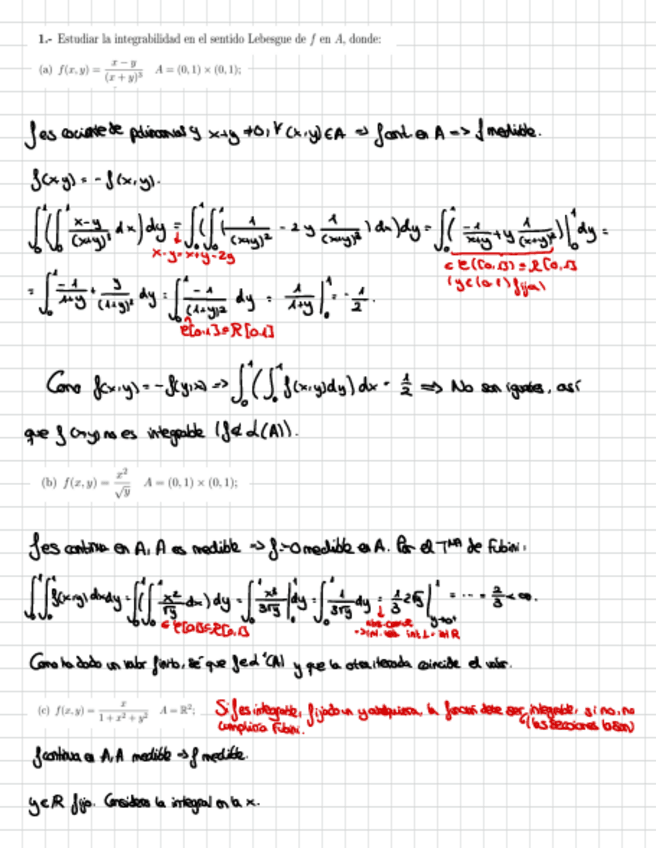 1.- Estudiar la integrabilidad en el sentido Lebesgue de f en A, donde:
(a) f(x,y) = \frac{x-y}{(x+y)^3} A = (0,1) × (0,1);
f es cociente de polinomios y x+y ≠ 0, ∀(x,y)∈A ⇒ f cont. en A => f medible.
f(x,y) = -f(x,y).
∫_0^1 (∫_0^1 \frac{x-y}{(x+y)^3} dx) dy = ∫_0^1 (∫_0^1 (\frac{1}{(x+y)^2} - 2y \frac{1}{(x+y)^3}) dx) dy = ∫_0^1 (\frac{-1}{x+y} + y \frac{1}{(x+y)^2}) |_0^1 dy =
x-y = x+y-2y
∈ C([0,1]) = R[0,1]
(y∈(0,1) fijo)
= ∫_0^1 \frac{-1}{1+y} + \frac{y}{(1+y)^2} dy = ∫_0^1 \frac{-1}{(1+y)^2} dy = \frac{1}{1+y} |_0^1 = -\frac{1}{2}.
C[0,1] = R[0,1]
Como f(x,y) = -f(y,x) => ∫_0^1 (∫_0^1 f(x,y) dy) dx = \frac{1}{2} ⇒ No son iguales, así
que f no es integrable (f ∉ L(A)).
(b) f(x,y) = \frac{x^2}{\sqrt{y}} A = (0,1) × (0,1);
f es continua en A, A es medible => f medible en A. Por el T^{ma} de Fubini:
∫_0^1 ∫_0^1 f(x,y) dxdy = ∫_0^1 (∫_0^1 \frac{x^2}{\sqrt{y}} dx) dy = ∫_0^1 \frac{x^3}{3\sqrt{y}} |_0^1 dy = ∫_0^1 \frac{1}{3\sqrt{y}} dy = \frac{1}{3} 2\sqrt{y} |^1 = ... = \frac{2}{3} < ∞.
∈ C[0,1] = R[0,1]
y→0^+
int. L = int R
Como ha dado un valor finito, sé que f ∈ L(A) y que la otra iterada coincide el valor.
(c) f(x,y) = \frac{x}{1+x^2+y^2} A = ℝ^2;
Si f es integrable, fijado un y cualquiera, la función debe ser integrable, si no, no
cumpliría Fubini. (las secciones lo son)
f continua en A, A medible => f medible.
y∈ℝ fijo. Considero la integral en la x.